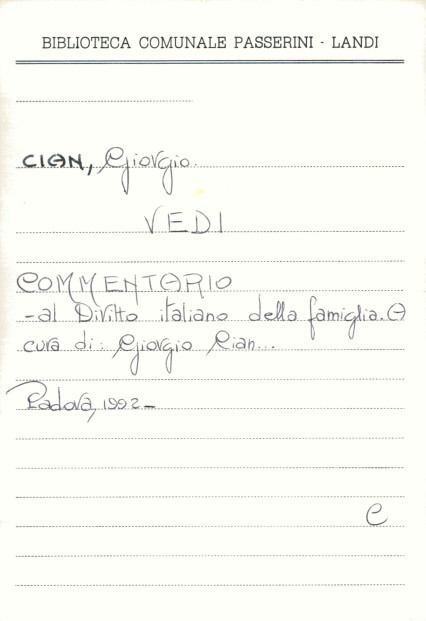 BIBLIOTECA COMUNALE PASSERINI - LANDI
CIAN, Giorgio.
VEDI
COMMENTARIO
-al Diritto italiano della famiglia. A
cura di: Giorgio Cian...
Padova, 1992-
C